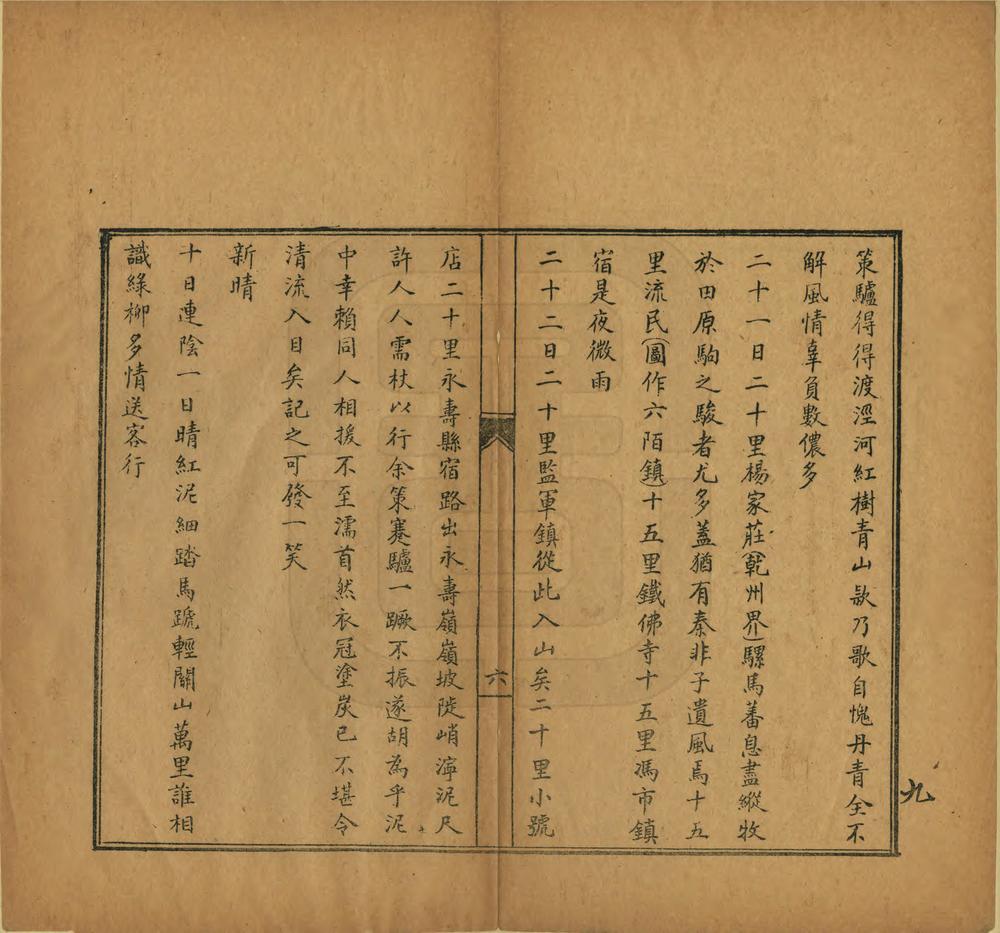 策驢得得渡涇河紅樹青山欵乃歌自愧丹青全不
解風情辜負數儂多
二十一日二十里楊家莊(乾州界)騾馬蕃息盡縱牧
於田原駒之駿者尤多蓋猶有秦非子遺風焉十五
里流民(圖作六陌鎮)十五里鐵佛寺十五里馮市鎮
宿是夜微雨
二十二日二十里監軍鎮從此入山矣二十里小號
六
店二十里永壽縣宿路出永壽嶺嶺坡陡峭濘泥尺
許人人需杖以行余策蹇驢一蹶不振遂胡為乎泥
中幸賴同人相援不至濡首然衣冠塗炭已不堪令
清流入目矣記之可發一笑
新晴
十日連陰一日晴紅泥細踏馬蹏輕關山萬里誰相
識綠柳多情送客行
九